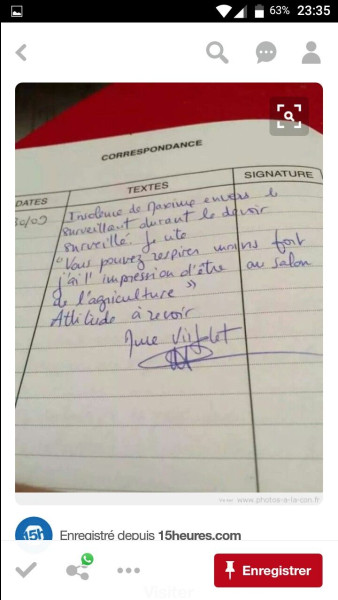 63% 23:35
CORRESPONDANCE
DATES TEXTES SIGNATURE
30/03 Insolence de Maxime envers le
surveillant durant le devoir
surveillé. Je cite
"Vous pouvez respirer moins fort
j'ai l'impression d'être au salon
de l'agriculture »
Attitude à revoir
Mme
www.photos-a-la-con.fr
15h
Enregistré depuis 15heures.com
Enregistrer
Visiter